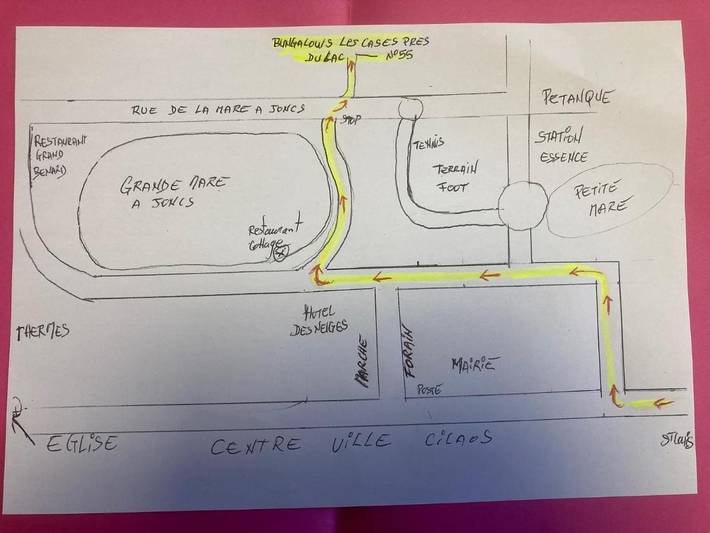 BUNGALOWS LES CASES PRES
DU LAC N°55
RUE DE LA MARE A JONCS
STOP
PETANQUE
RESTAURANT
GRAND
BENARD
TENNIS
TERRAIN
FOOT
STATION
ESSENCE
GRANDE MARE
A JONCS
PETITE
MARE
Restaurant
Cottage
THERMES
HOTEL
DES NEIGES
MARCHE
FORAIN
MAIRIE
POSTE
EGLISE CENTRE VILLE CILAOS
St Louis